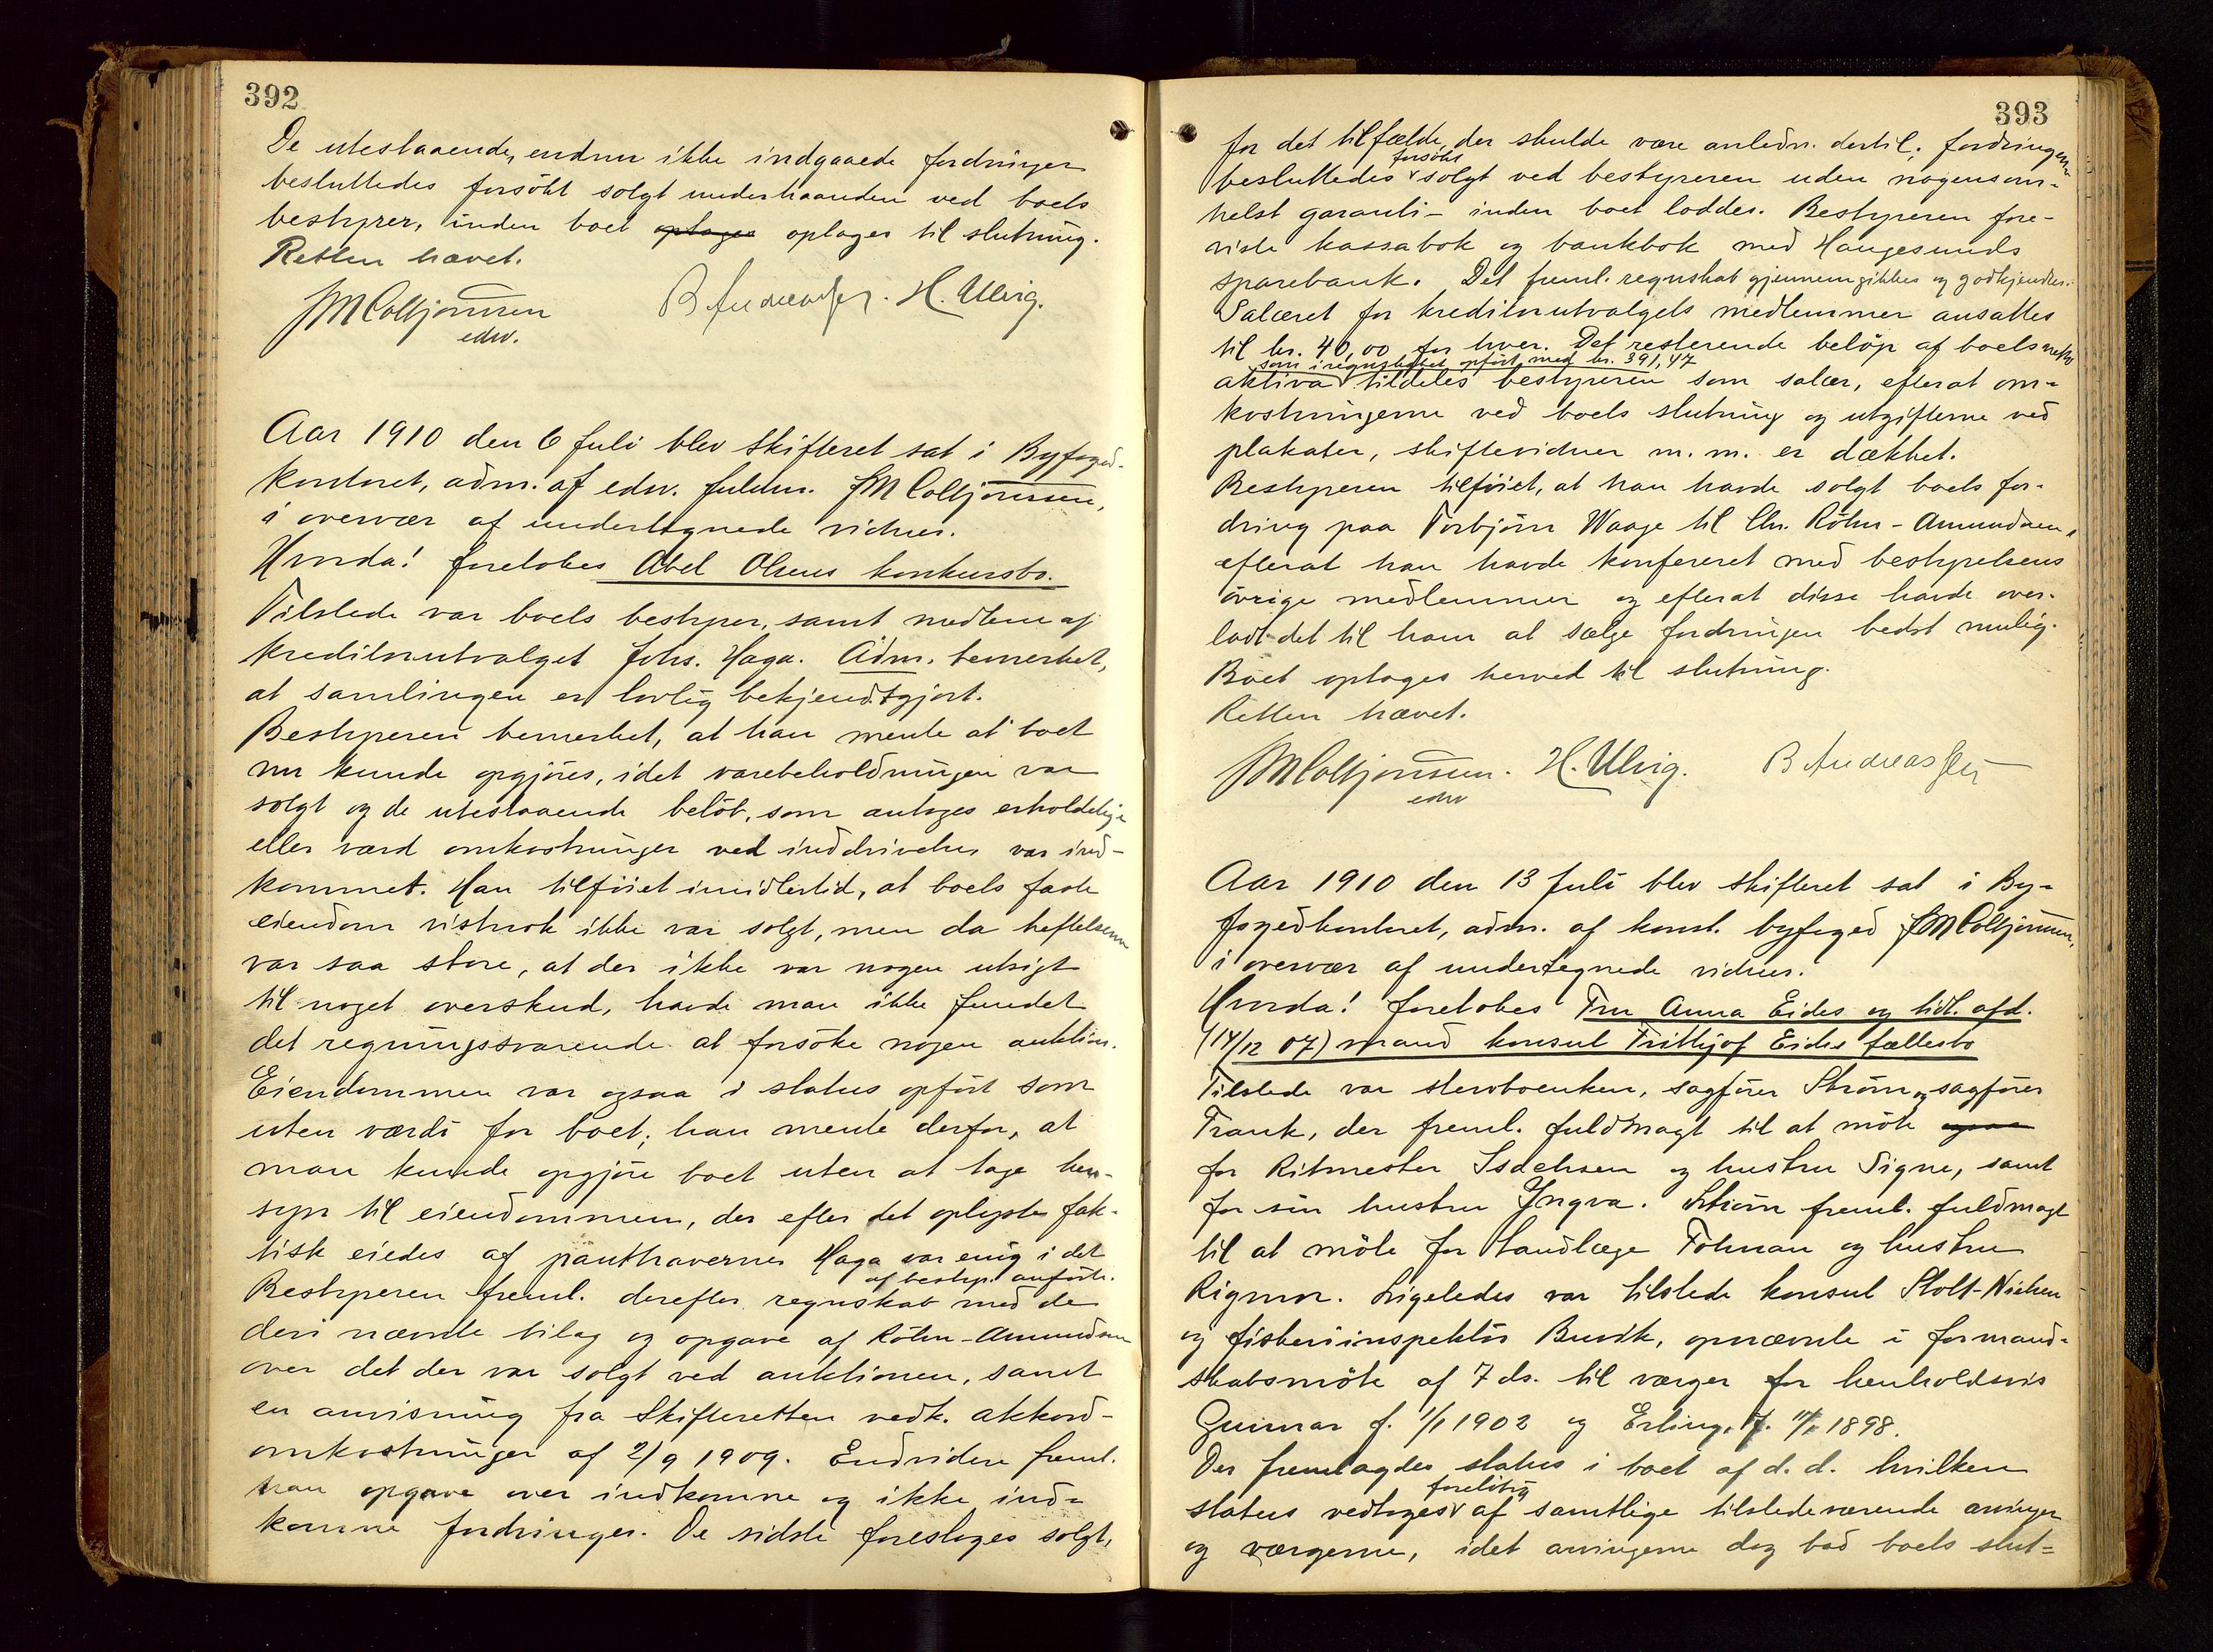 392
De utestaaende, endnu ikke indgaaede fordringer
besluttedes forsökt solgt underhaanden ved boets
bestyrer, inden boet optages optages til slutning.
Retten hævet.
JM Colbjörnsen B Andreassen. H. Ulvig.
edsv.
Aar 1910 den 6 Juli blev skifteret sat i Byfoged-
kontoret, adm. af edsv. fuldm. JM Colbjörnsen,
i overvær af undertegnede vidner.
Hvorda! foretokes Abel Olsens konkursbo.
Tilstede var boets bestyrer, samt medlem af
kreditorutvalget Johs. Haga. Adm. bemerket,
at samlingen er lovlig bekjendtgjort.
Bestyreren bemerket, at han mente at boet
nu kunde opgjöres, idet varebeholdningen var
solgt og de utestaaende belöb, som antoges erholdelige
eller værd omkostninger ved inddrivelse, var ind-
kommet. Han tilföiet imidlertid, at boets faste
eiendom vistnok ikke var solgt, men da heftelserne
var saa store, at der ikke var nogen utsigt
til noget overskud, havde man ikke fundet
det regningssvarende at forsöke nogen auktion.
Eiendommen var ogsaa i status opfört som
uten værdi for boet; han mente derfor, at
man kunde opgjöre boet uten at tage hen-
syn til eiendommen, der efter det oplyste fak-
tisk eiedes af panthaverne. Haga var enig i det
af bestyr. anförte.
Bestyreren freml. derefter regnskab med de
deri nævnte bilag og opgave af Röhn-Amundsen
over det der var solgt ved auktionen, samt
en anvisning fra Skifteretten vedk. akkord-
omkostninger af 2/9 1909. Endvidere freml.
han opgave over indkomne og ikke ind-
komne fordringer. De sidste foresloges solgt,
393
for det tilfælde, der skulde være anledn. dertil; fordringerne
forsökt
besluttedes solgt ved bestyreren uden nogensom-
helst garanti - inden boet loddes. Bestyreren fore-
viste kassabok og bankbok med Haugesunds
sparebank. Det freml. regnskab gjennemgikkes og godkjendtes.
Salæret for kreditorutvalgets medlemmer ansattes
til kr. 40,00 for hver. Det resterende belöp af boets netto
som i regnskabet opfört med kr. 391,47
aktiva tildeles bestyreren som salær, efterat om-
kostningerne ved boets slutning og utgifterne ved
plakater, skiftevidner m. m. er dækket.
Bestyreren tilföiet, at han havde solgt boets for-
dring paa Torbjörn Waage til Chr. Röhn-Amundsen,
efterat han havde konfereret med bestyrelsens
övrige medlemmer og efterat disse havde over-
ladt det til ham at sælge fordringen bedst mulig.
Boet optages herved til slutning.
Retten hævet.
JM Colbjörnsen. H. Ulvig. B Andreassen
edsv
Aar 1910 den 13 Juli blev skifteret sat i By-
fogedkontoret, adm. af konst. byfoged JM Colbjörnsen,
i overvær af undertegnede vidner.
Hvorda! foretokes Fru Anna Eides og tidl. afd.
(14/12 07) mand konsul Fritthjof Eides fællesbo
Tilstede var sterboenken, sagförer Ström og sagförer
Frank, der freml. fuldmagt til at möte
for Ritmester Isachsen og hustru Signe, samt
for sin hustru Yngva. Ström freml. fuldmagt
til at möte for Landlæge Tohnan og hustru
Rigmor. Ligeledes var tilstede konsul Stolt-Nielsen
og fiskeriinspektör Buvik, opnævnte i formand-
skabsmöte af 7 ds. til værger for henholdsvis
Gunnar f. 1/1 1902 og Erling, f. 1898.
Der fremlagdes status i boet af d. d. hvilken
forelöbig
status vedtoges af samtlige tilstedeværende arvinger
og værgerne, idet arvingerne dog bad boets slut-